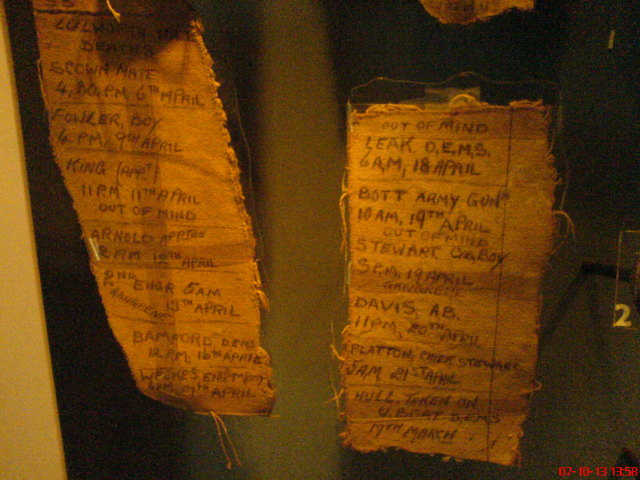 DEATHS
MATE
4, 20, P.M, 6TH APRIL
FOWLER, BOY
4 PM, 9TH APRIL
KING (APPT)
11PM 11TH APRIL
OUT OF MIND
ARNOLD
12TH APRIL
2ND ENGR 5AM
GANGRENE 13TH APRIL
BAMFORD, DEMS
12 PM, 16TH APRIL
WEEKES
17TH APRIL
OUT OF MIND
LEAK D.E.M.S.
6 A,M, 18 APRIL
BOTT ARMY GUNR
10 AM, 19TH APRIL
OUT OF MIND
STEWART BOY
5 P.M, 19 APRIL
GANGRENE
DAVIS, AB.
11PM, 20TH APRIL
PLATTON, CHIEF STEWARD
5AM, 21ST APRIL
HULL. TAKEN ON
U. BOAT D.E.MS
17TH MARCH
2
07-10-13 13:58